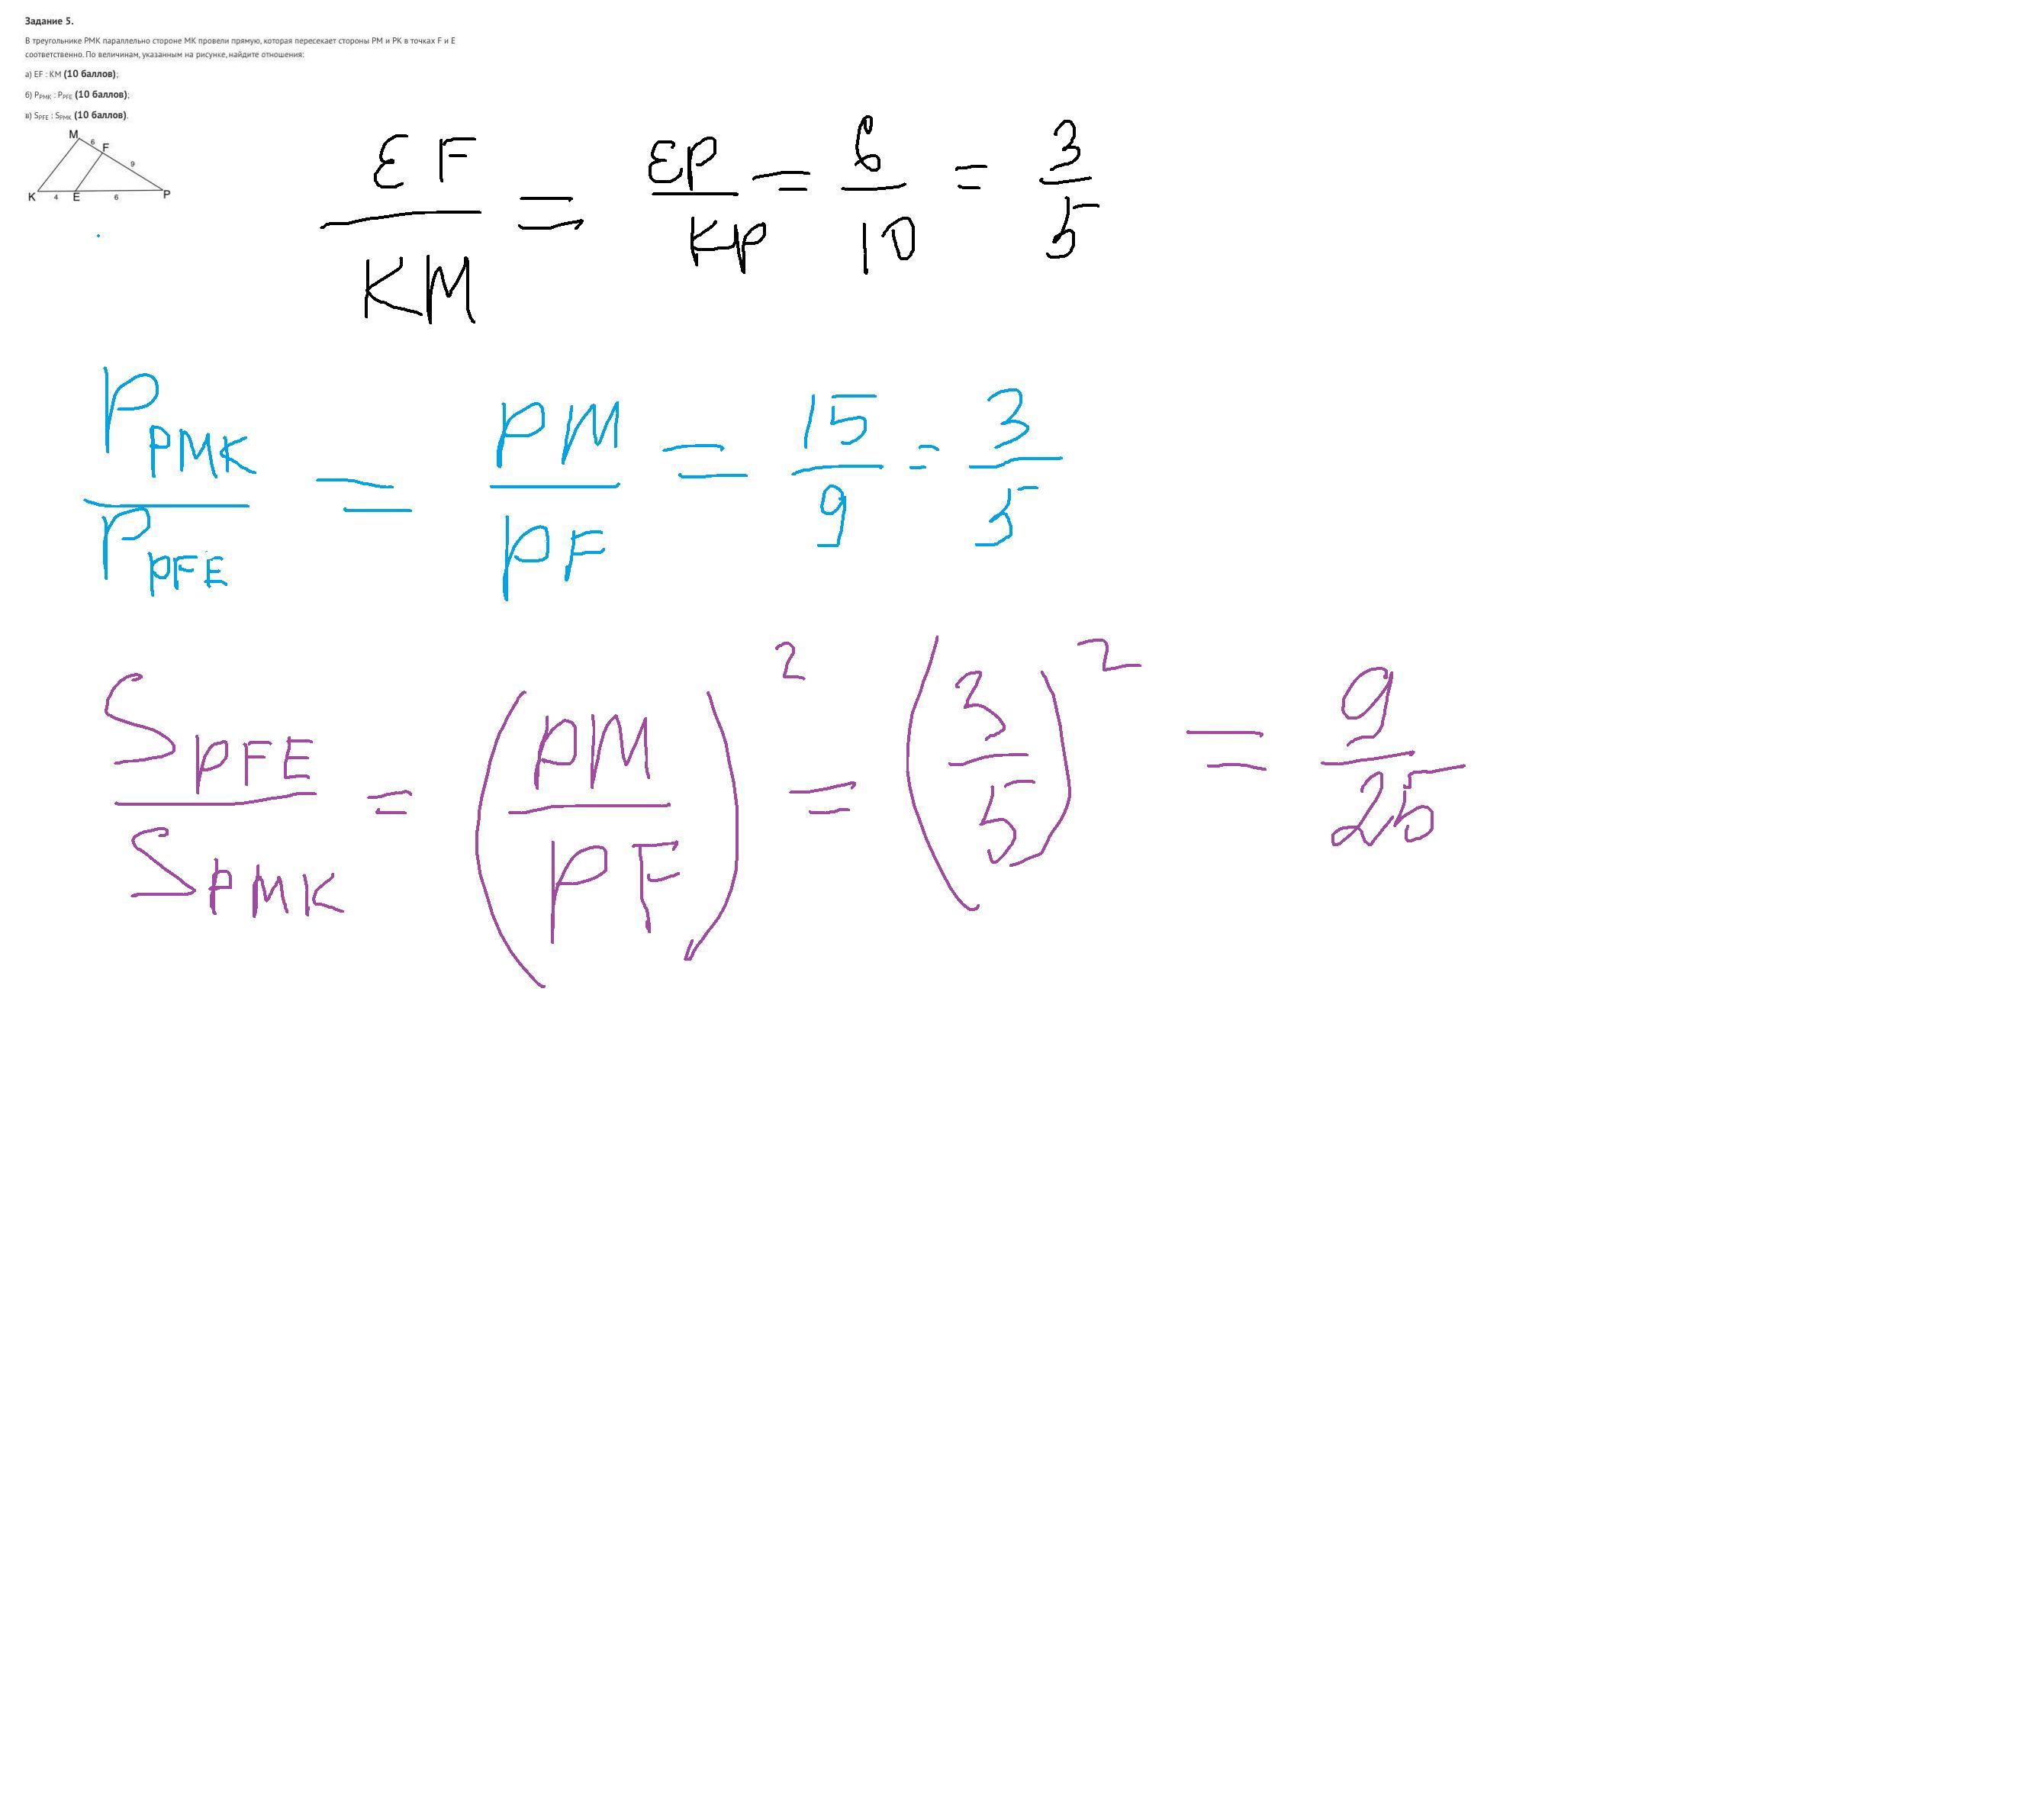 Задание 5.
В треугольнике РМК параллельно стороне МК провели прямую, которая пересекает стороны РМ и РК в точках F и Е
соответственно. По величинам, указанным на рисунке, найдите отношения:
а) EF : KM (10 баллов);
б) P_PMK : P_PFE (10 баллов);
в) S_PFE : S_PMK (10 баллов).
M 6 F
9
K 4 E 6 P
EF/KM = EP/KP = 6/10 = 3/5
P_PMK/P_PFE = PM/PF = 15/9 = 3/5
S_PFE/S_PMK = (PM/PF)^2 = (3/5)^2 = 9/25